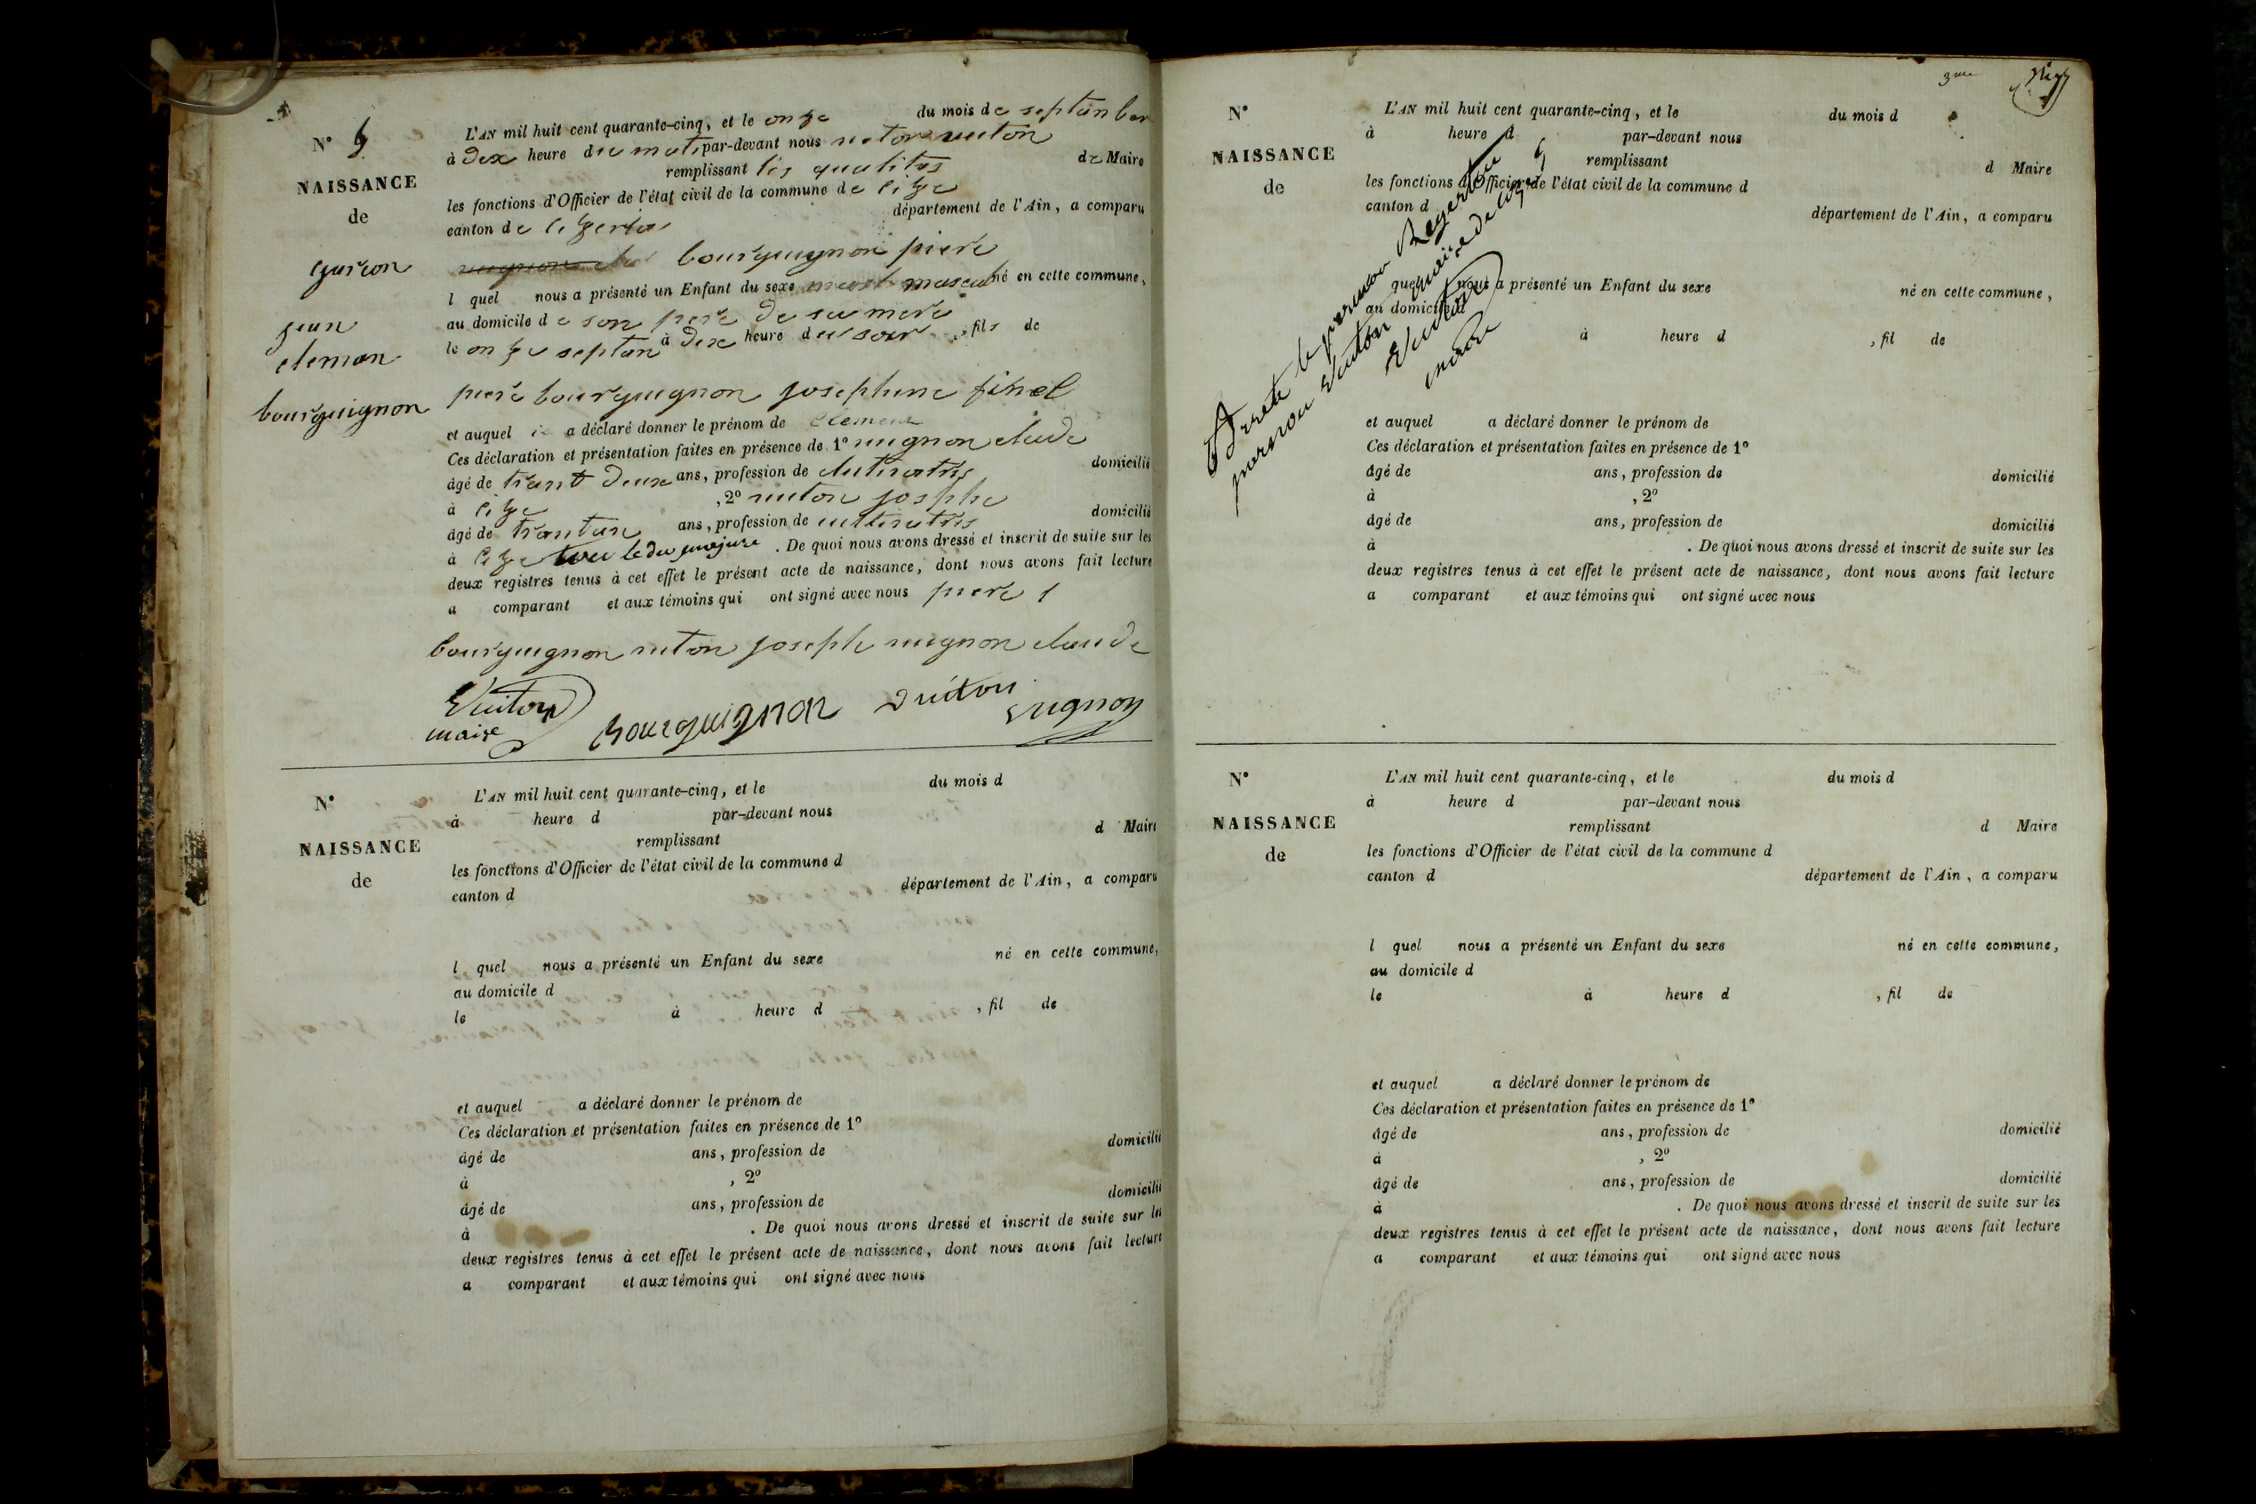 N°
NAISSANCE
de
garcon
jean
cleman
bourguignon
L'AN mil huit cent quarante-cinq, et le onze du mois de septanber
à dix heure du mati par-devant nous vuiton
remplissant les qualites de Maire
les fonctions d'Officier de l'état civil de la commune de
canton de département de l'Ain, a comparu
bourguignon piere
l quel nous a présenté un Enfant du sexe né en cette commune,
au domicile de son pere de sa mere
le onze septan à dix heure du soir, fils de
piere bourguignon josephine
et auquel il a déclaré donner le prénom de clement
Ces déclaration et présentation faites en présence de 1° claude
âgé de trant deux ans, profession de domicilié
à, 2° vuiton josephe
âgé de ans, profession de domicilié
à tous le du majure. De quoi nous avons dressé et inscrit de suite sur les
deux registres tenus à cet effet le présent acte de naissance, dont nous avons fait lecture
a comparant et aux témoins qui ont signé avec nous piere
bourguignon vuiton joseph vugnon claude
Vuiton
maire
Bourguignon
Vuiton
Vugnon
N°
NAISSANCE
de
L'AN mil huit cent quarante-cinq, et le du mois d
à heure d par-devant nous
remplissant d Maire
les fonctions d'Officier de l'état civil de la commune d
canton d département de l'Ain, a comparu
l quel nous a présenté un Enfant du sexe né en cette commune,
au domicile d
le à heure d, fil de
et auquel a déclaré donner le prénom de
Ces déclaration et présentation faites en présence de 1°
âgé de ans, profession de domicilié
à, 2°
âgé de ans, profession de domicilié
à. De quoi nous avons dressé et inscrit de suite sur les
deux registres tenus à cet effet le présent acte de naissance, dont nous avons fait lecture
a comparant et aux témoins qui ont signé avec nous
N°
NAISSANCE
de
L'AN mil huit cent quarante-cinq, et le du mois d
à heure d par-devant nous
remplissant d Maire
les fonctions d'Officier de l'état civil de la commune d
canton d département de l'Ain, a comparu
quel nous a présenté un Enfant du sexe né en cette commune,
au domicile d
à heure d, fil de
et auquel a déclaré donner le prénom de
Ces déclaration et présentation faites en présence de 1°
âgé de ans, profession de domicilié
à, 2°
âgé de ans, profession de domicilié
à. De quoi nous avons dressé et inscrit de suite sur les
deux registres tenus à cet effet le présent acte de naissance, dont nous avons fait lecture
a comparant et aux témoins qui ont signé avec nous
Arrete le
par nou Vuiton maire de
Vuiton
maire
N°
NAISSANCE
de
L'AN mil huit cent quarante-cinq, et le du mois d
à heure d par-devant nous
remplissant d Maire
les fonctions d'Officier de l'état civil de la commune d
canton d département de l'Ain, a comparu
l quel nous a présenté un Enfant du sexe né en cette commune,
au domicile d
le à heure d, fil de
et auquel a déclaré donner le prénom de
Ces déclaration et présentation faites en présence de 1°
âgé de ans, profession de domicilié
à, 2°
âgé de ans, profession de domicilié
à. De quoi nous avons dressé et inscrit de suite sur les
deux registres tenus à cet effet le présent acte de naissance, dont nous avons fait lecture
a comparant et aux témoins qui ont signé avec nous